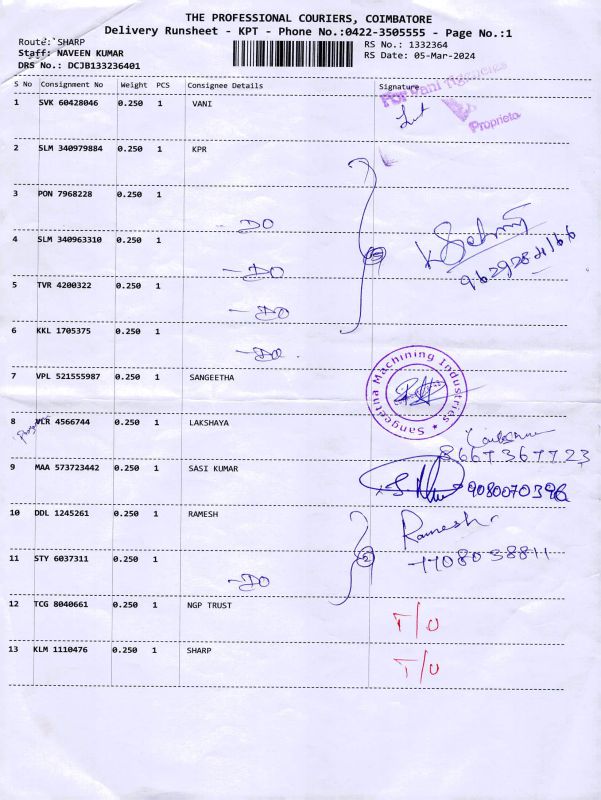 THE PROFESSIONAL COURIERS, COIMBATORE
Delivery Runsheet - KPT - Phone No.:0422-3505555 - Page No.:1
Route: SHARP
RS No.: 1332364
Staff: NAVEEN KUMAR
RS Date: 05-Mar-2024
DRS No.: DCJB133236401
S No Consignment No Weight PCS Consignee Details Signature
For Vani Agencies
Proprieto
1 SVK 60428046 0.250 1 VANI
2 SLM 340979884 0.250 1 KPR
3 PON 7968228 0.250 1
DO
4 SLM 340963310 0.250 1
- DO
9629284166
5 TVR 4200322 0.250 1
- DO
6 KKL 1705375 0.250 1
- DO .
7 VPL 521555987 0.250 1 SANGEETHA
Sangeetha Machining Industries
8 VLR 4566744 0.250 1 LAKSHAYA
8667367723
9 MAA 573723442 0.250 1 SASI KUMAR
9080070396
10 DDL 1245261 0.250 1 RAMESH
Ramesh
11 STY 6037311 0.250 1
7708038811
2
- DO
12 TCG 8040661 0.250 1 NGP TRUST
T/O
13 KLM 1110476 0.250 1 SHARP
T/O